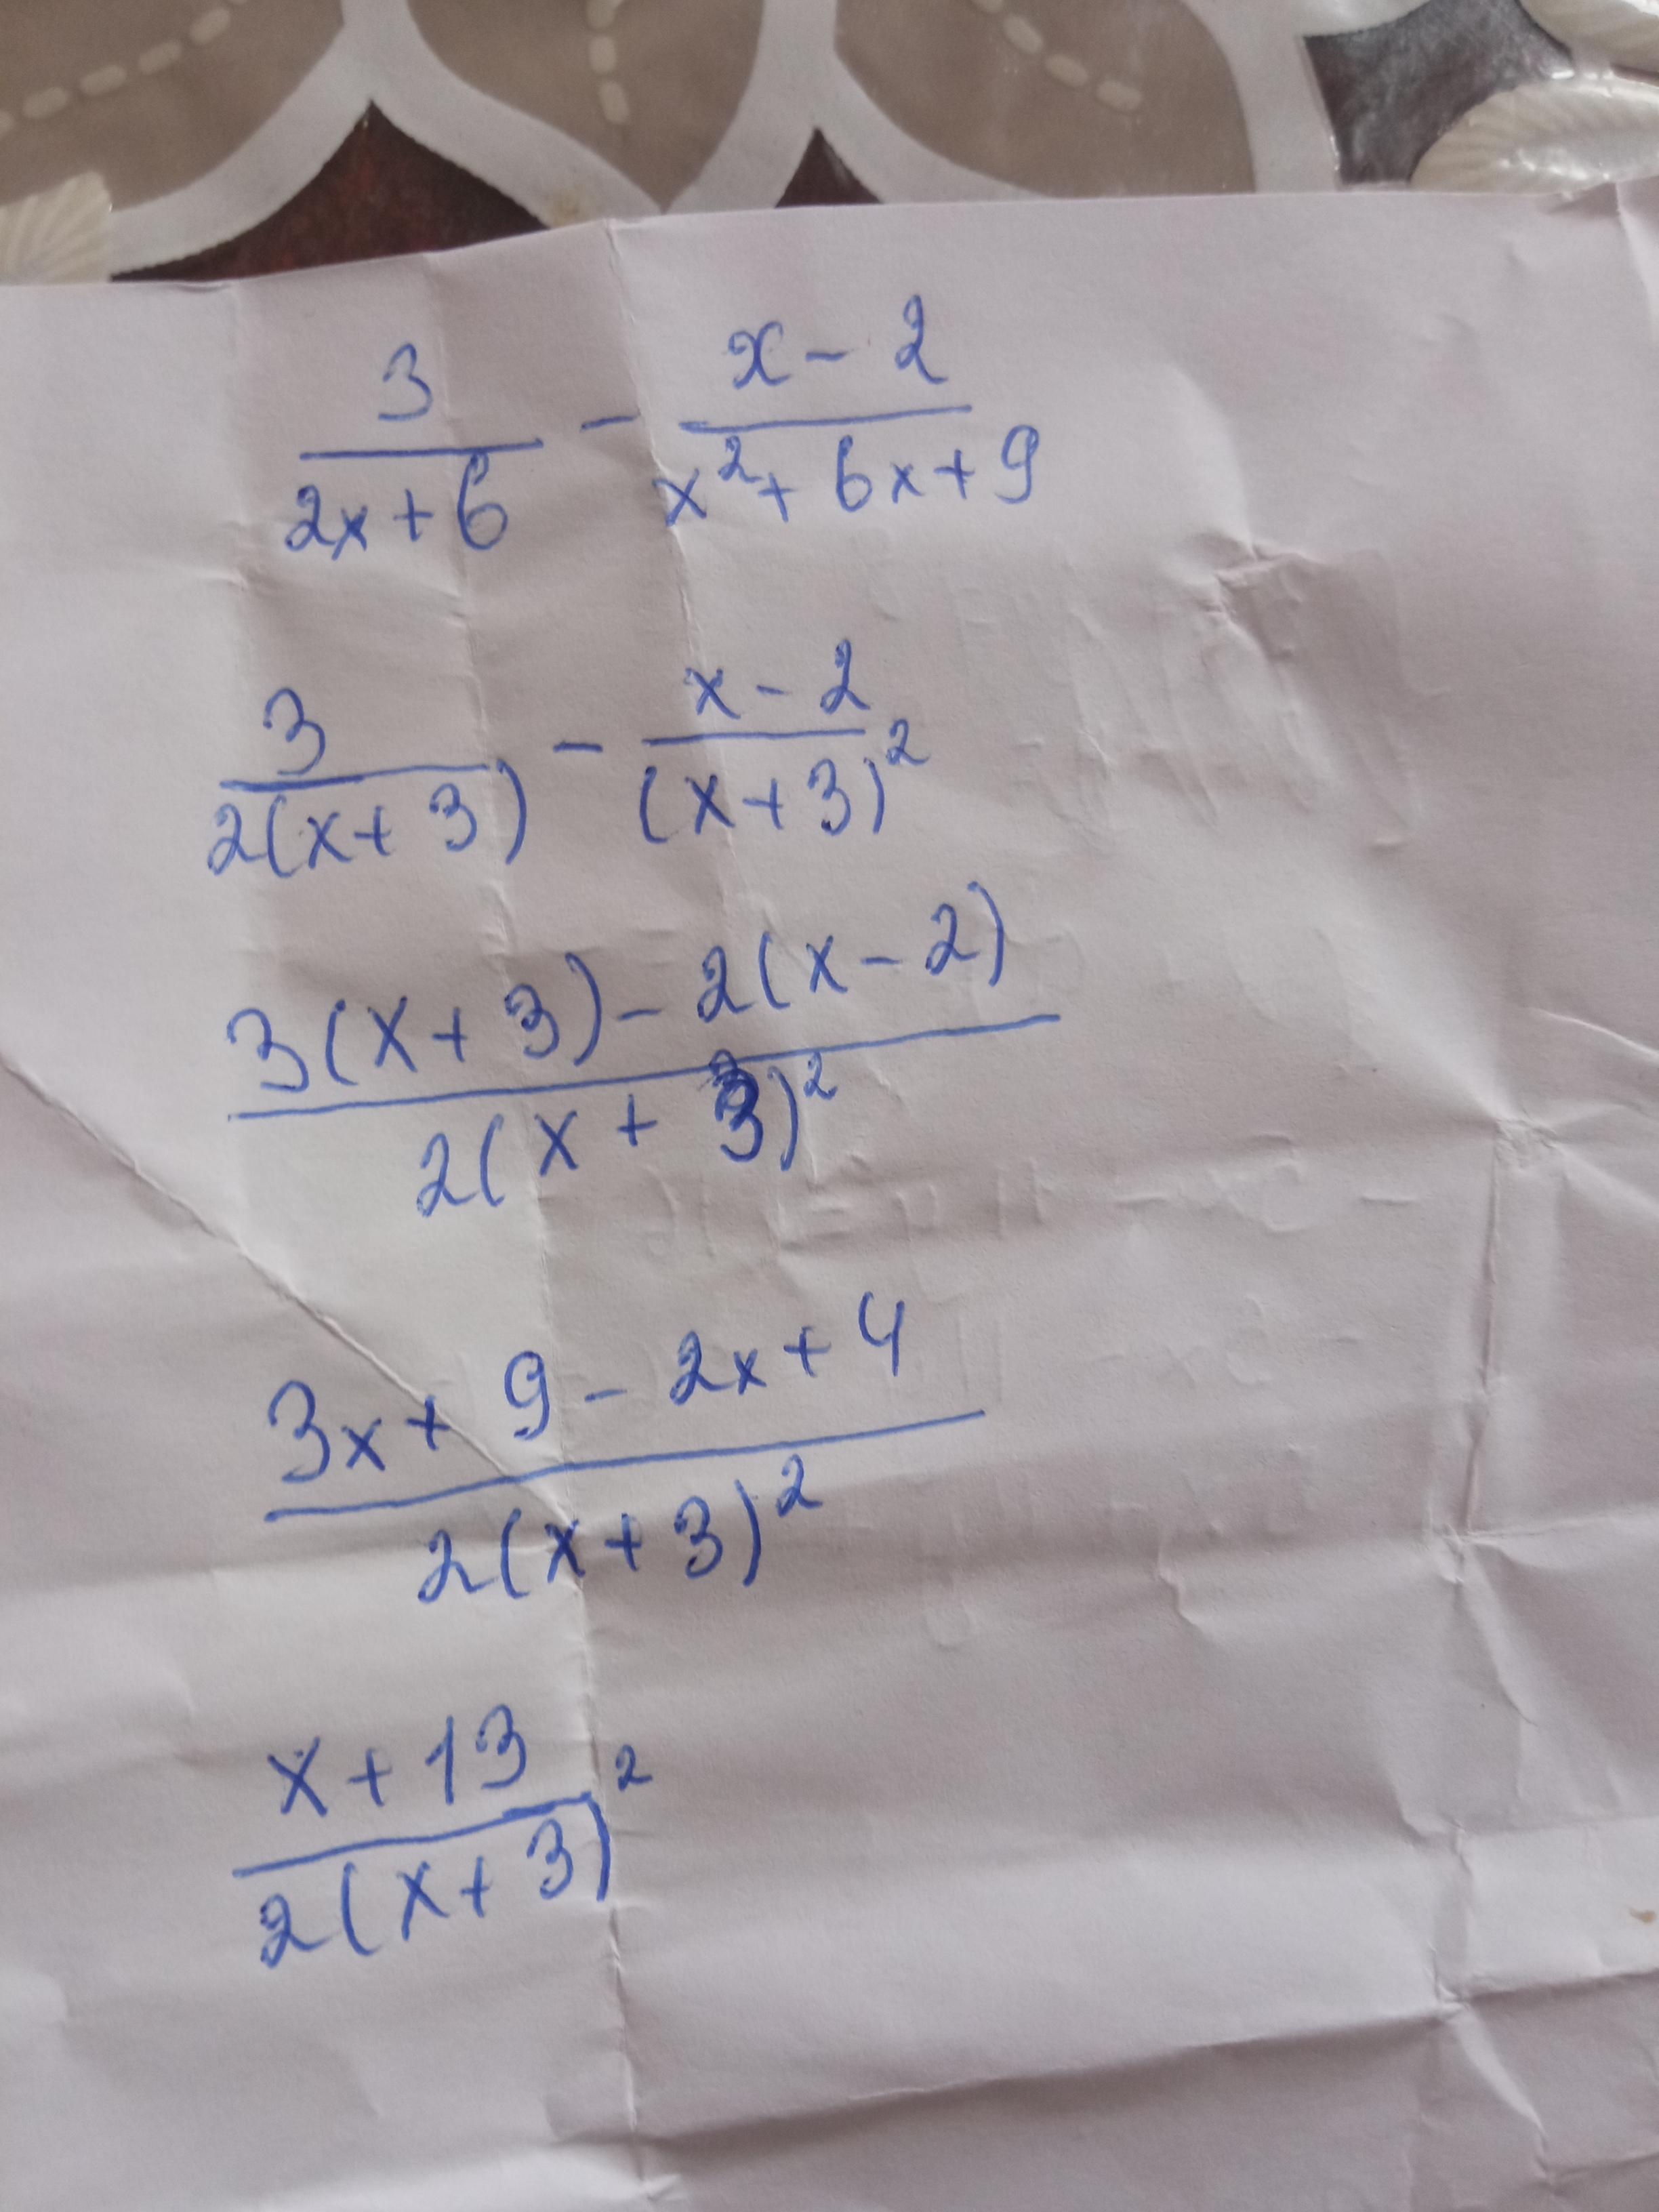 3/(2x+6) - (x-2)/(x²+6x+9)
3/(2(x+3)) - (x-2)/(x+3)²
(3(x+3)-2(x-2))/(2(x+3)²)
(3x+9-2x+4)/(2(x+3)²)
(x+13)/(2(x+3)²)